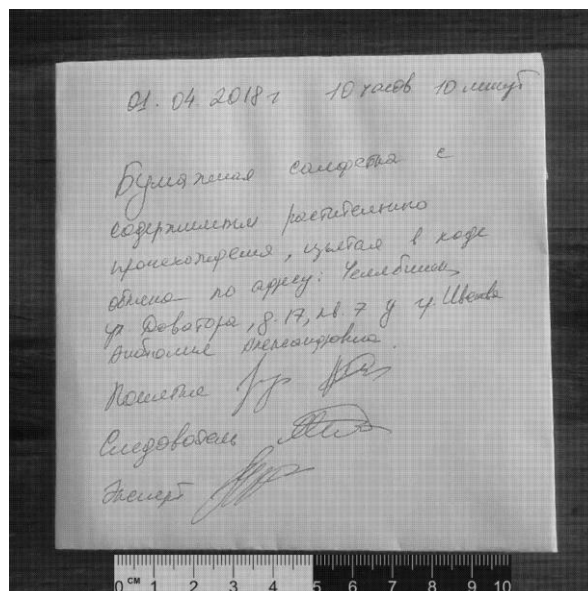 01. 04. 2018 г 10 часов 10 минут
Бумажная салфетка с
содержимым растительного
происхождения, изъятая в ходе
обыска по адресу: Челябинск,
ул Доватора, д. 17, кв 7 у гр.
Александровна.
Понятые
Следователь
Эксперт
0 CM 1 2 3 4 5 6 7 8 9 10